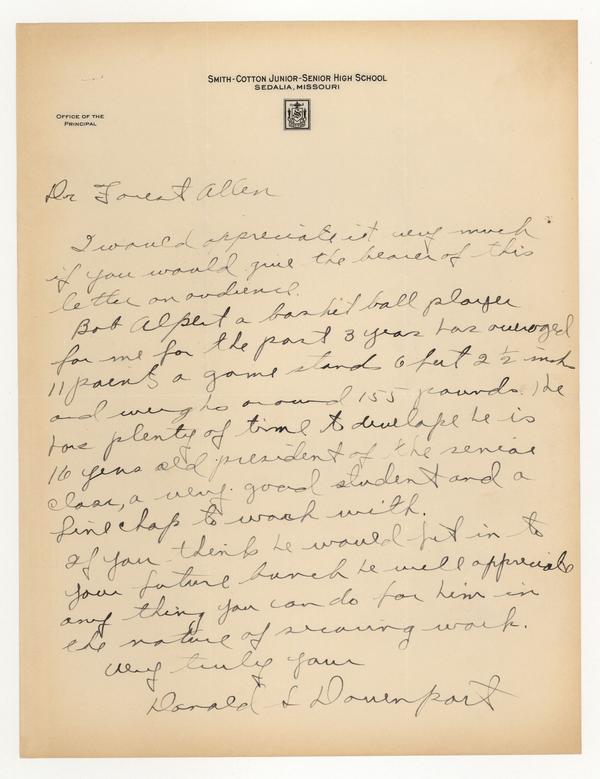 SMITH-COTTON JUNIOR-SENIOR HIGH SCHOOL
SEDALIA, MISSOURI
OFFICE OF THE
PRINCIPAL
Dr Forest Allen
I would appreciate it very much
if you would give the bearer of this
letter an audience.
Bob Alpert a basket ball player
for me for the past 3 years has averaged
11 points a game stands 6 feet 2 1/2 inch
and weighs around 155 pounds. He
has plenty of time to develape he is
16 years old president of the senior
class, a very good student and a
fine chap to work with.
If you think he would fit in to
your future bunch he will appreciate
any thing you can do for him in
the nature of securing work.
Very truly your
Donald S Davenport